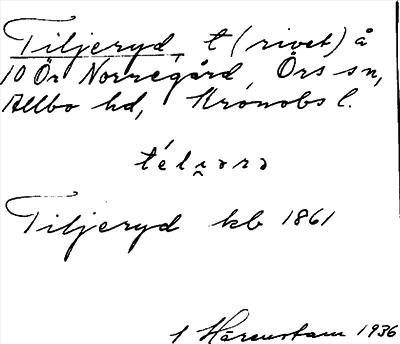 Tiljeryd, t (rivet) å
10 Ör Norregård, Örs sn,
Allbo hd, Kronobs l.
téli̯ərə
Tiljeryd kb 1861
1 Härenstam 1936